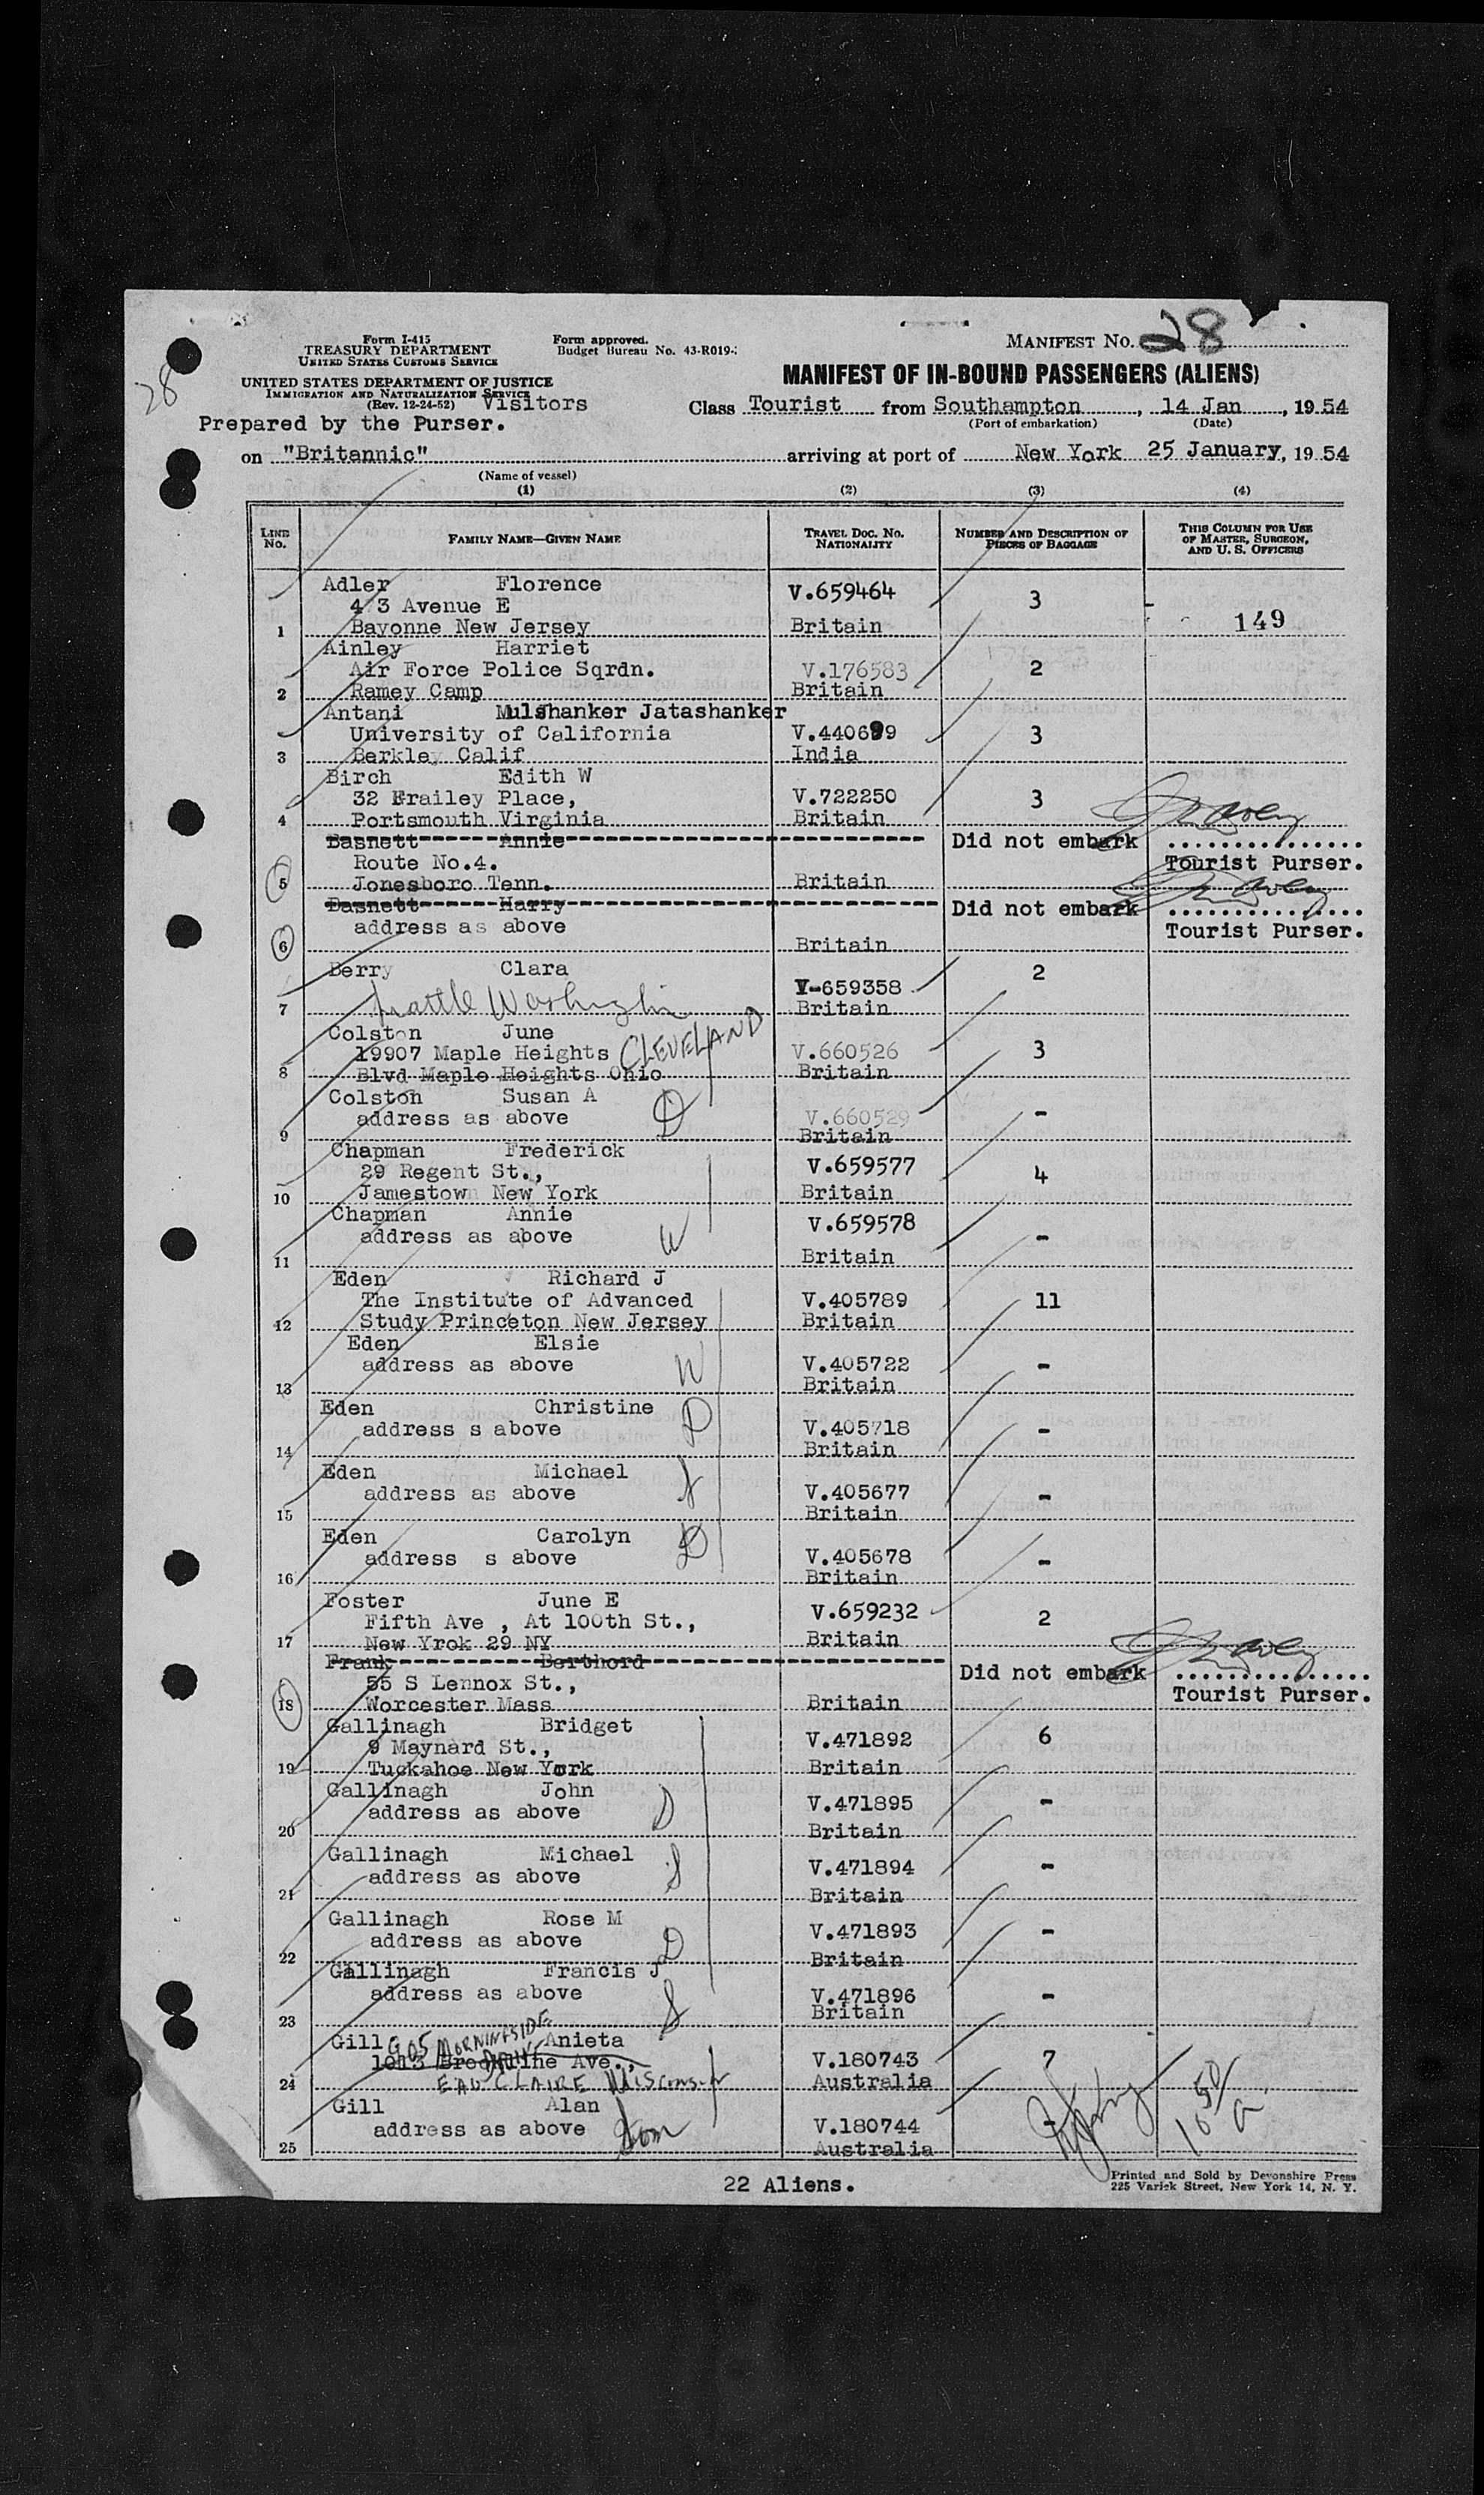 28
Form I-415
TREASURY DEPARTMENT
UNITED STATES CUSTOMS SERVICE
Form approved.
Budget Bureau No. 43-R019-
MANIFEST No. 28
UNITED STATES DEPARTMENT OF JUSTICE
IMMIGRATION AND NATURALIZATION SERVICE
(Rev. 12-24-52) Visitors
MANIFEST OF IN-BOUND PASSENGERS (ALIENS)
Class Tourist from Southampton, 14 Jan, 1954
(Port of embarkation) (Date)
Prepared by the Purser.
on "Britannic" arriving at port of New York 25 January, 1954
(Name of vessel)
(1) (2) (3) (4)
LINE No. FAMILY NAME—GIVEN NAME TRAVEL DOC. No. NATIONALITY NUMBER AND DESCRIPTION OF PIECES OF BAGGAGE THIS COLUMN FOR USE OF MASTER, SURGEON, AND U. S. OFFICERS
Adler Florence V.659464 3 -
4 3 Avenue E
1 Bayonne New Jersey Britain 149
Ainley Harriet
Air Force Police Sqrdn. V.176583 2
2 Ramey Camp Britain
Antani Mulshanker Jatashanker
University of California V.440699 3
3 Berkley Calif India
Birch Edith W
32 Frailey Place, V.722250 3
4 Portsmouth Virginia Britain
Basnett Annie Did not embark
Route No.4. Tourist Purser.
5 Jonesboro Tenn. Britain
Basnett Harry Did not embark
address as above Tourist Purser.
6 Britain
Berry Clara 2
V-659358
7 Seattle Washington Britain
Colston June
19907 Maple Heights CLEVELAND V.660526 3
8 Blvd Maple Heights Ohio Britain
Colston Susan A
address as above D V.660529 -
9 Britain
Chapman Frederick
29 Regent St., V.659577 4
10 Jamestown New York Britain
Chapman Annie V.659578
address as above W -
11 Britain
Eden Richard J
The Institute of Advanced V.405789 11
12 Study Princeton New Jersey Britain
Eden Elsie
address as above W V.405722 -
13 Britain
Eden Christine D
address s above V.405718 -
14 Britain
Eden Michael S
address as above V.405677 -
15 Britain
Eden Carolyn D
address s above V.405678 -
16 Britain
Foster June E V.659232 2
Fifth Ave , At 100th St.,
17 New Yrok 29 NY Britain
Frank Berthord Did not embark
55 S Lennox St., Tourist Purser.
18 Worcester Mass Britain
Gallinagh Bridget V.471892 6
9 Maynard St.,
19 Tuckahoe New York Britain
Gallinagh John V.471895 -
address as above D
20 Britain
Gallinagh Michael V.471894 -
address as above S
21 Britain
Gallinagh Rose M V.471893 -
address as above D
22 Britain
Gallinagh Francis J
address as above S V.471896 -
23 Britain
Gill 905 MORNINGSIDE Anieta
1013 Ave., DRIVE V.180743 7
24 EAU CLAIRE Wisconsin Australia
Gill Alan
address as above Son V.180744 -
25 Australia
22 Aliens.
Printed and Sold by Devonshire Press
225 Varick Street, New York 14, N. Y.